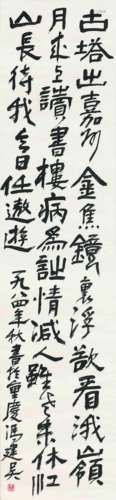 古塔出嘉州金焦鏡裏浮欲看峨嶺
月來上讀書樓病為情減人雖老未休江
山長待我今日任遨遊 一九八四年秋書於重慶馮建吴